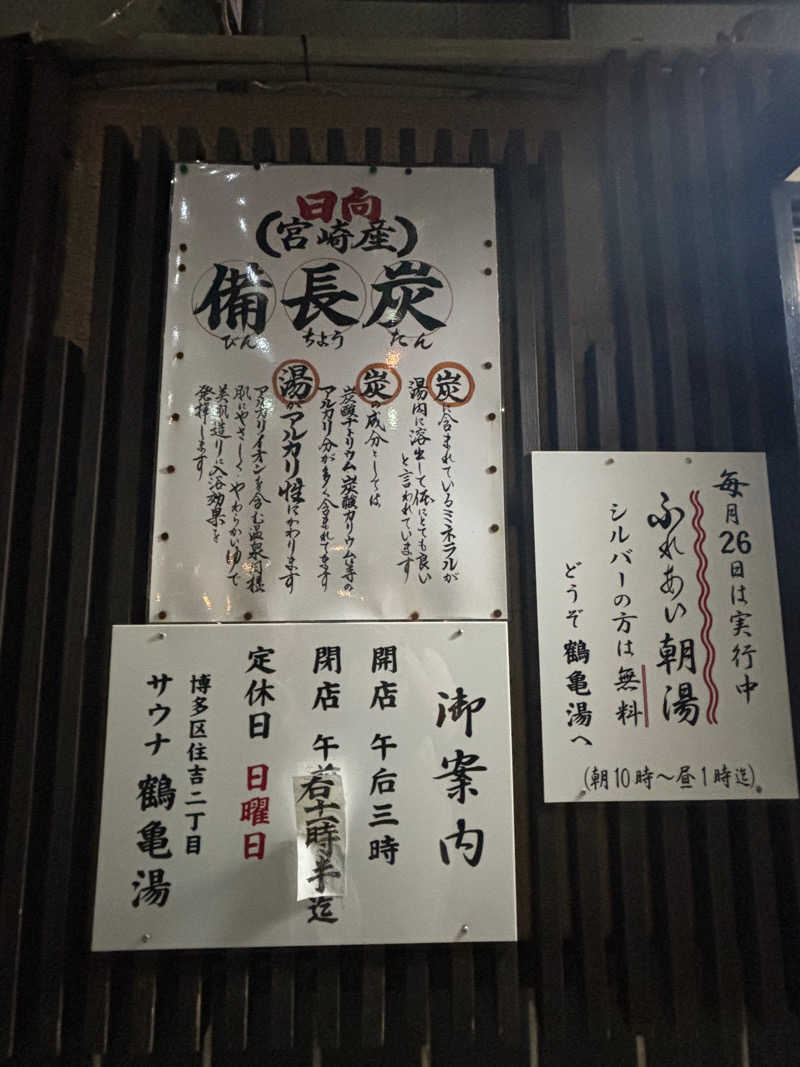 日向
(宮崎産)
備長炭
びんちょうたん
炭に含まれているミネラルが
湯内に溶出して体にとても良い
と言われています
炭の成分としては、
炭酸ナトリウム 炭酸カリウム等の
アルカリ分が多く含まれてます
湯がアルカリ性にかわります
アルカリイオンを含む温泉同様
肌にやさしくやわらかいゆで
美肌造りに入浴効果を
発揮します
毎月26日は実行中
ふれあい朝湯
シルバーの方は無料
どうぞ鶴亀湯へ
(朝10時〜昼1時迄)
御案内
開店 午后三時
閉店 午后十一時半迄
定休日 日曜日
博多区住吉二丁目
サウナ 鶴亀湯